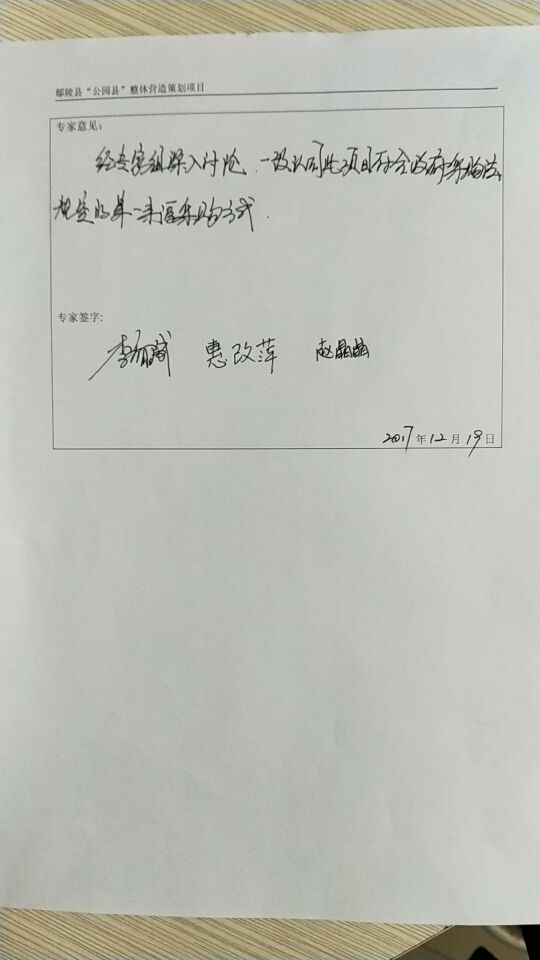 鄢陵县“公园县”整体营造策划项目
专家意见:
经专家组深入讨论,一致认同此项目符合政府采购法
规定的单一来源采购方式.
专家签字:
惠改萍 赵晶晶
2017年12月19日